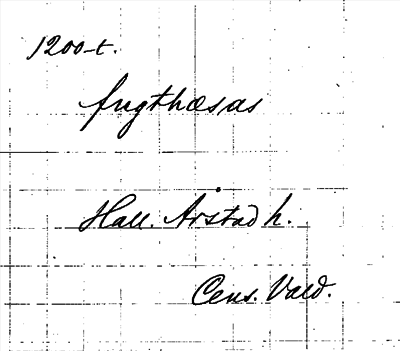 1200-t.
frugthæsas
Hall. Årstad h.
Cens. Vald.